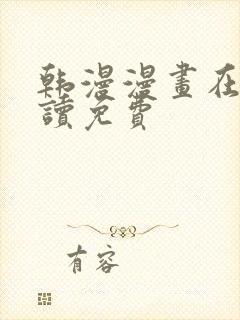 韩漫漫畫在
讀免費
有容